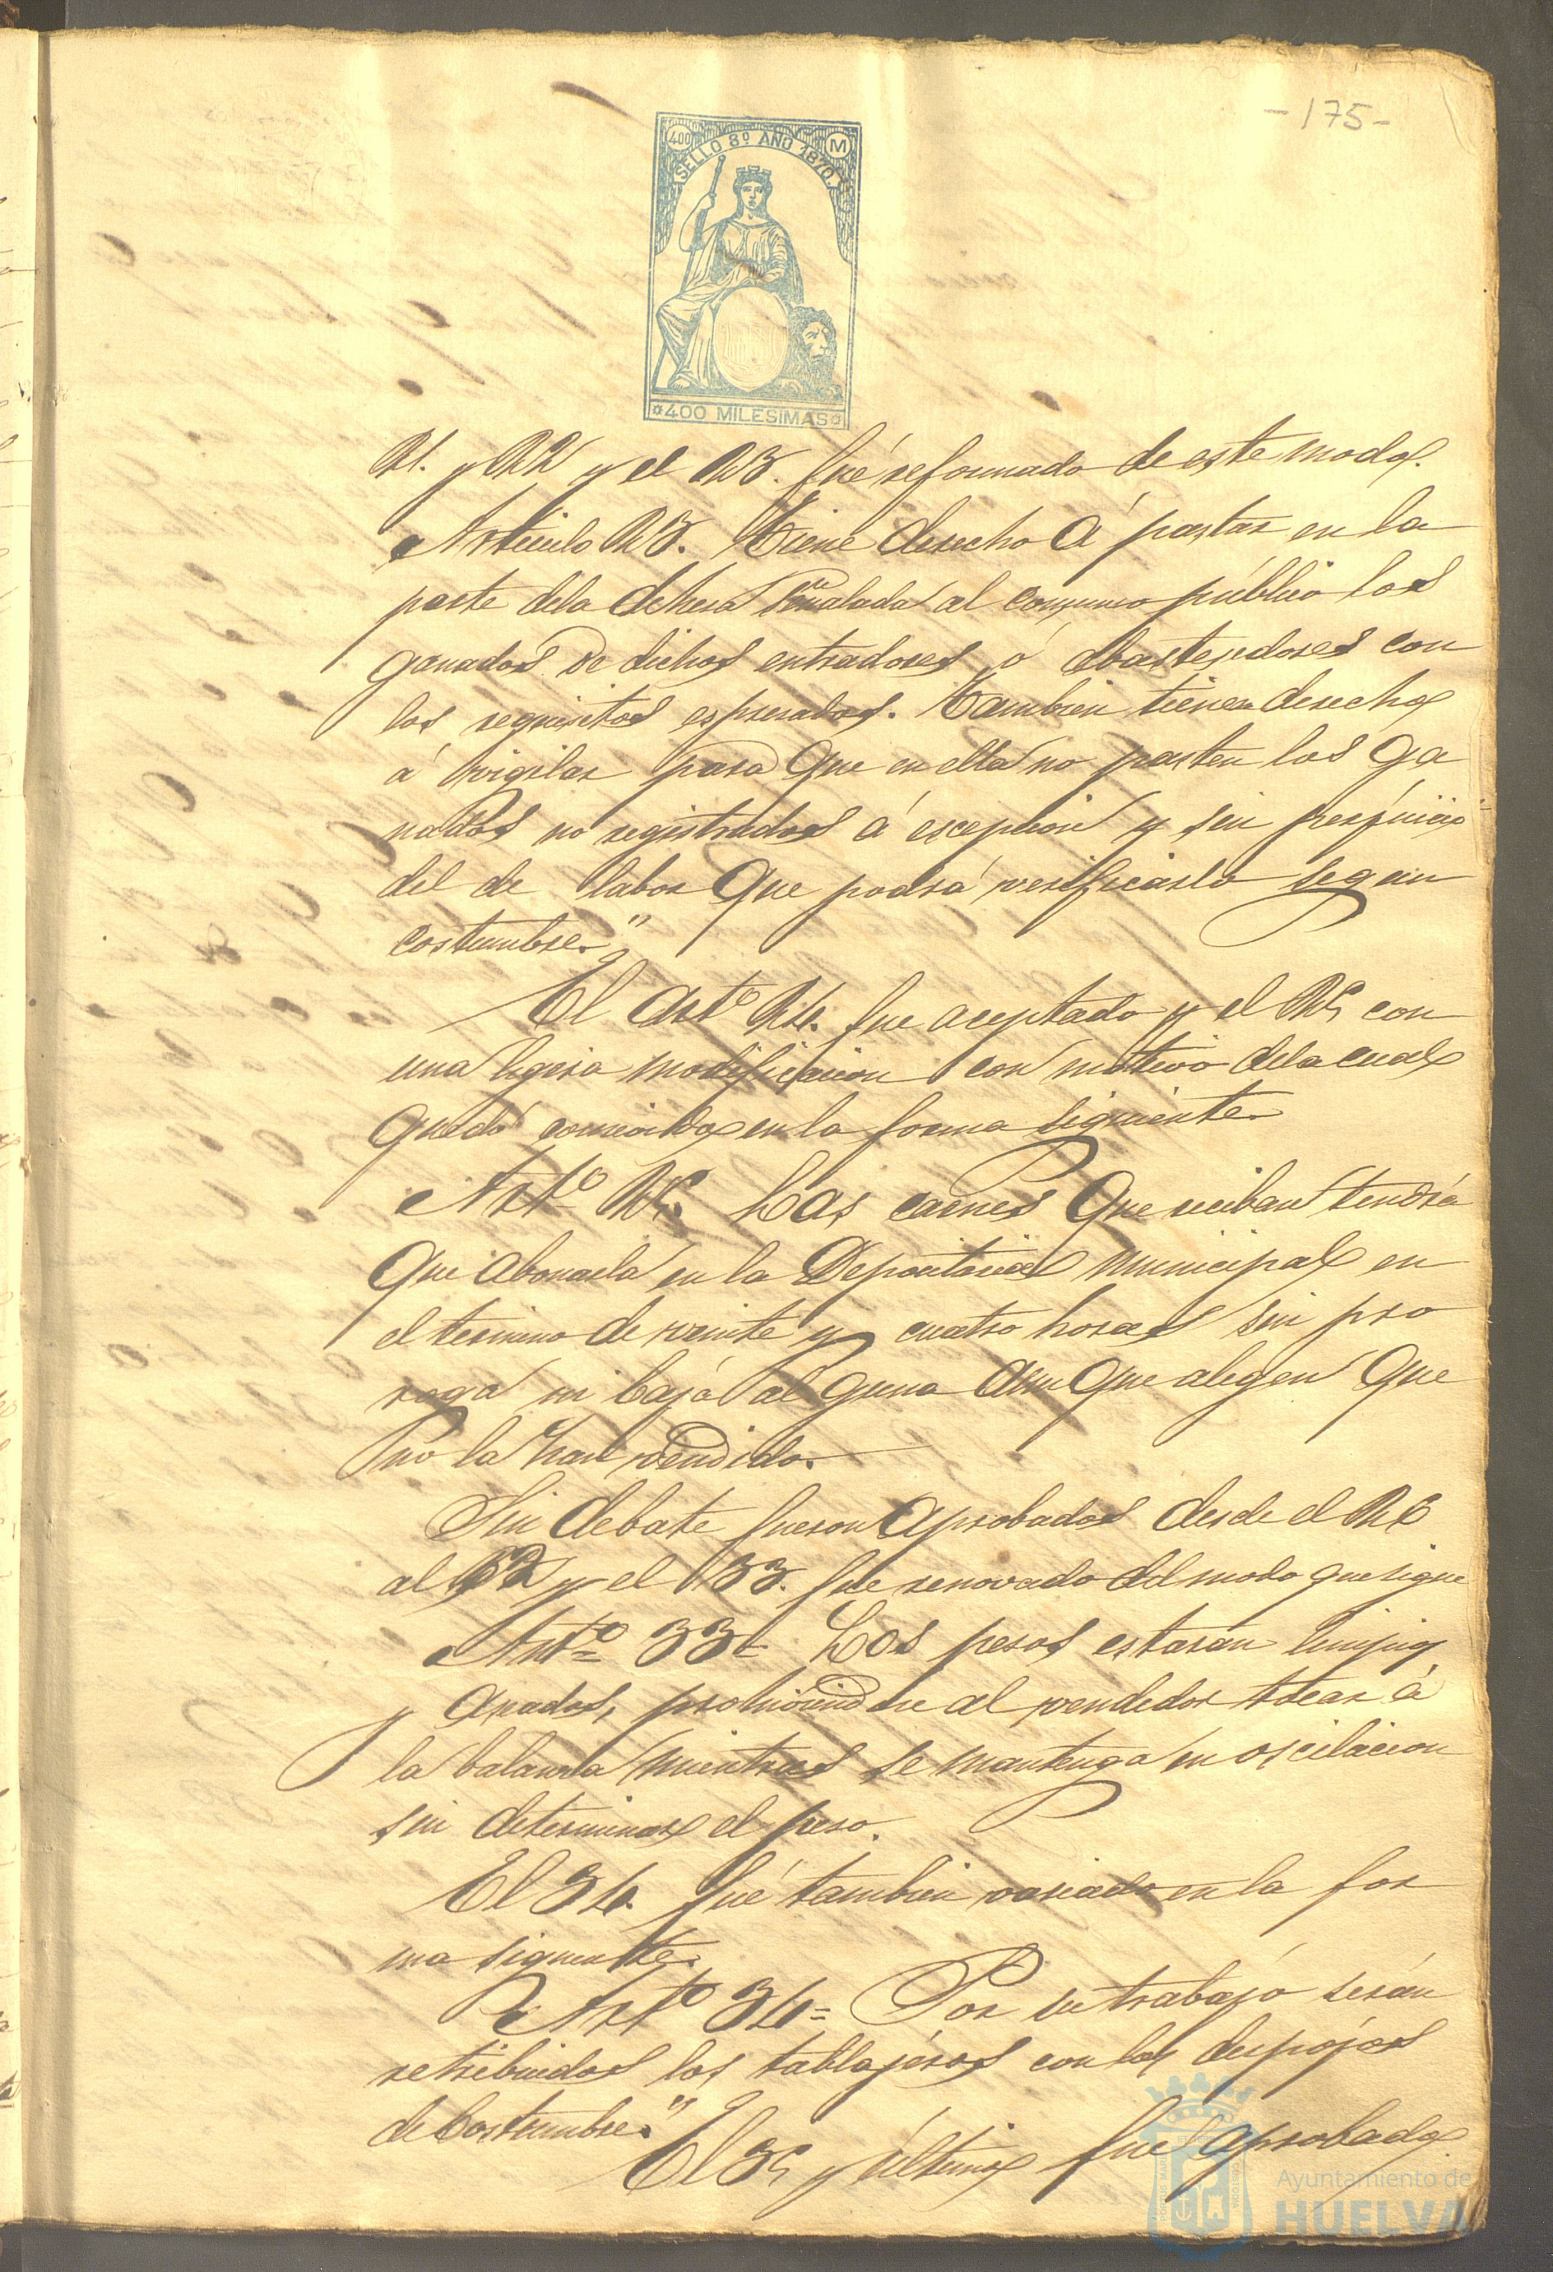 -175-
400 M
SELLO 8º AÑO 1870.
400 MILESIMAS
21. y 22 y el 23. fué reformado de este modo.
Articulo 23. Tiene derecho á pastar en la
parte dela dehesa señalada al consumo público los
ganados de dichos entradores ó abastecedores con
los requisitos espresados. Tambien tienen derecho
á vigilar para que en ella no pasten los ga
nados no registrados á escepcion y sin perjuicio
del de labor que podrá verificarlo segun
costumbre."
El artº 24. fue aceptado y el 25 con
una ligera modificacion con motivo dela cual
quedó concevido en la forma siguiente.
Artº 25. Las carnes que reciban tendrá
que abonarla en la Depositaria municipal en
el termino de veinte y cuatro horas sin pro
roga ni baja alguna aunque alegen que
no la han vendido.
Sin debate fueron aprobados desde el 26
al 32 y el 33. fue renovado del modo que sigue
Artº 33= Los pesos estarán limpios
y arados, prohiviendose al vendedor tocar á
la balanza mientras se mantenga en oscilacion
sin determinar el peso.
El 34. fué tambien variado en la for
ma siguiente.
Artº 34= Por su trabajo serán
retribuidos los tablajeros con los despojos
de Costumbre."
El 35 y último fue aprobado
Ayuntamiento de
HUELVA